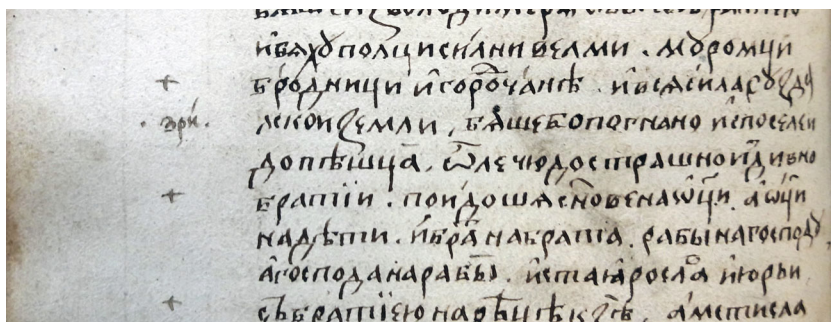 и бяху полци силни велми. муромци
бродници и сорочане. и вся сила суздал
зри.
лской земли, бяше бо погнано и с поселеи
до пѣшца. ѿле чюдо страшно и дивно
братїи. поидоша сн҃ове на ѡц҃и. а ѡц҃и
на дѣти. и бра на брата. рабы на господу,
а господа на рабы. и ста ꙗросла и юрьи
съ братїею на рѣцѣ кзѣ, а мстисла